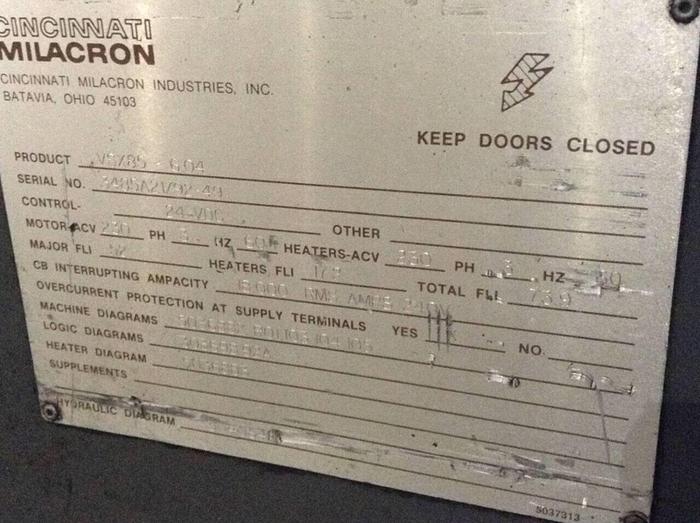 CINCINNATI
MILACRON
CINCINNATI MILACRON INDUSTRIES, INC.
BATAVIA, OHIO 45103
KEEP DOORS CLOSED
PRODUCT VSX85 - 6.04
SERIAL NO.
CONTROL- 24-VDC OTHER
MOTOR-ACV 230 PH 3 HZ 60 HEATERS-ACV 230 PH 3 HZ 60
MAJOR FLI 52 HEATERS FLI TOTAL FLI 73.9
CB INTERRUPTING AMPACITY 18,000 RMS AMPS 240V
OVERCURRENT PROTECTION AT SUPPLY TERMINALS YES NO
MACHINE DIAGRAMS
LOGIC DIAGRAMS
HEATER DIAGRAM
SUPPLEMENTS
HYDRAULIC DIAGRAM
5037313